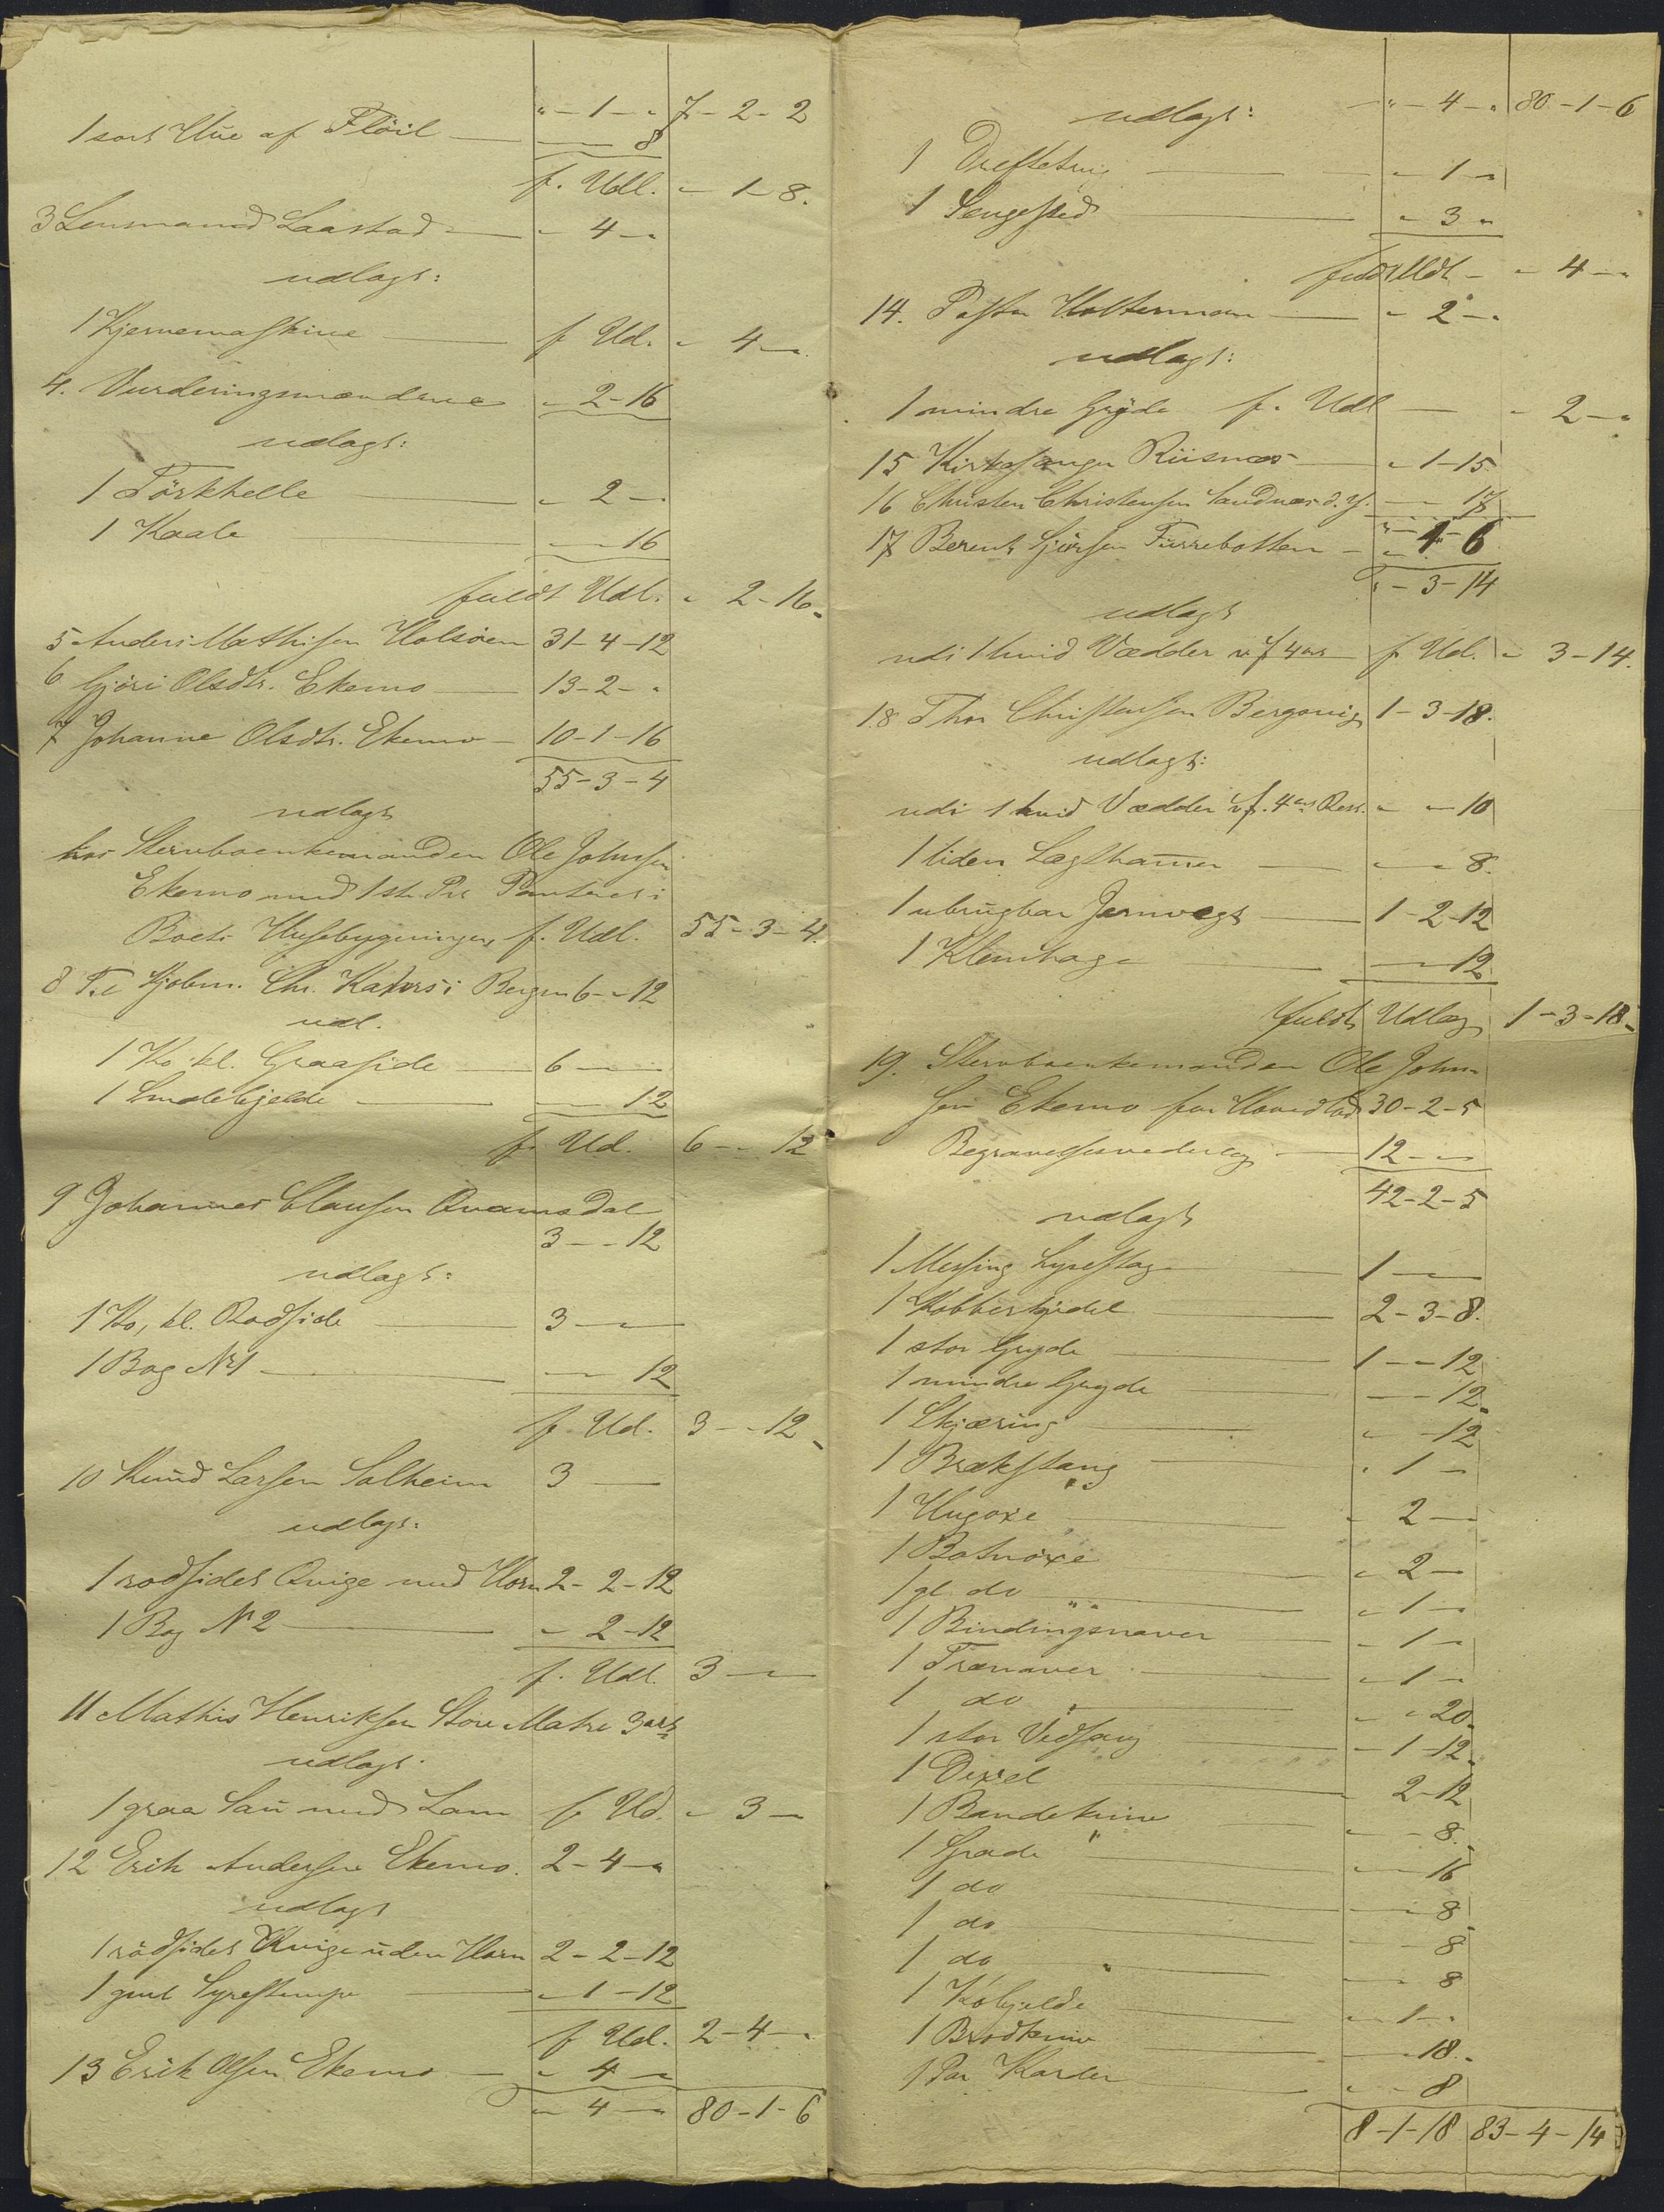 " - 1 - " 7 - 2 - 2
1 sort Hue af Flöil — 8
f. Udl. " - 1 - 8.
3 Lensmand Laastad — " 4 - "
udlagt:
1 Kjernemaskine — f Ud. " 4 - "
4. Vurderingsmændene " 2 - 16
udlagt:
1 Törkhelle — " 2 -
1 Kaale — 16
fuldt Udl. " 2 - 16
5 Anders Mathisen Holsöen 31 - 4 - 12
6 Gjöri Olsdtr. Ekemo — 13 - 2 - "
7 Johanne Olsdtr. Ekemo — 10 - 1 - 16
55 - 3 - 4
udlagt
hos Stervboenkemanden Ole Johnsen
Ekemo med 1ste Pr. Panteret i
Boets Husebygninger, f. Udl. 55 - 3 - 4.
8 Kjøbm. Chr. i Bergen 6 - " 12
udl.
1 Ko kl. Graaside — 6 —
1 Smalebjelde — 12
f. Ud. 6 - " 12
9 Johannes Clausen Qvamsdal
3 - - 12
udlagt:
1 Ko, kl. Rodside — 3 —
1 Bog N1 — 12
f. Ud. 3 - - 12
10 Knud Larsen Solheim 3 —
udlagt:
1 rodsidet Qvige med Horn 2 - 2 - 12
1 Bog N 2 — " 2 - 12
f. Udl. 3 —
11 Mathis Henriksen Store Matre 3 ort
udlagt.
1 graa Sau med Lam f Ud. " 3 —
12 Erik Andersen Ekemo. 2 - 4 - "
udlagt
1 rödsidet Kvige uden Horn 2 - 2 - 12
1 gml — " 1 - 12
f Ud. 2 - 4 - "
13 Erik Olsen Ekemo — " 4 - "
" 4 - " 80 - 1 - 6
udlagt: " - 4 - " 80 - 1 - 6
1 — " 1 "
1 Sengested — " 3 "
fuldt Udl. - " 4 - "
14. Pastor Holterman — " 2 - "
udlagt:
1 mindre Gryde f. Udl — " 2 - "
15 Kirkesanger Riisnæs — " 1 - 15
16 Christen Christensen Sandnæs d. y. — 17
17 Berent Furrebotten — " 1 6
" - 3 - 14
udlagt
udi 1 hvid Vædder v f 4 ort f Ud. " 3 - 14.
18 Thor Christensen Bergsvig 1 - 3 - 18.
udlagt:
udi 1 hvid Vædder v f. 4 ort Rest. " " 10
1 liden Lægthammer — 8.
1 ubrugbar Jernvegt — 1 - 2 - 12
1 Klemhage — 12
fuldt Udlæg 1 - 3 - 18
19. Stervboenkemanden Ole John-
sen Ekemo for Hovedlod 30 - 2 - 5
Begravelsesvederlag — 12 - "
42 - 2 - 5
udlagt
1 Messing Lysestage — 1 —
1 Kobberkjedel — 2 - 3 - 8.
1 stor Gryde — 1 - - 12
1 mindre Gryde — 12
1 Skjæring — " - 12
1 Brækstang — " 1 -
1 Hugøxe — " 2 —
1 Botnöxe — " 2 —
1 gl. do — " 1 -
1 Bindingsnaver — " 1 -
1 Trænaver — " 1 -
1 do — " " 20
1 stor Vedsaug — " 1 - 12
1 Dixel — 2 - 12
1 Bandekniv — 8.
1 Grade — 16
1 do — 8
1 do — 8
1 do — 8
1 Kobjelde — " 1 - "
1 Brødkniv — 18
1 Par Karder — 8
8 - 1 - 18 83 - 4 - 14